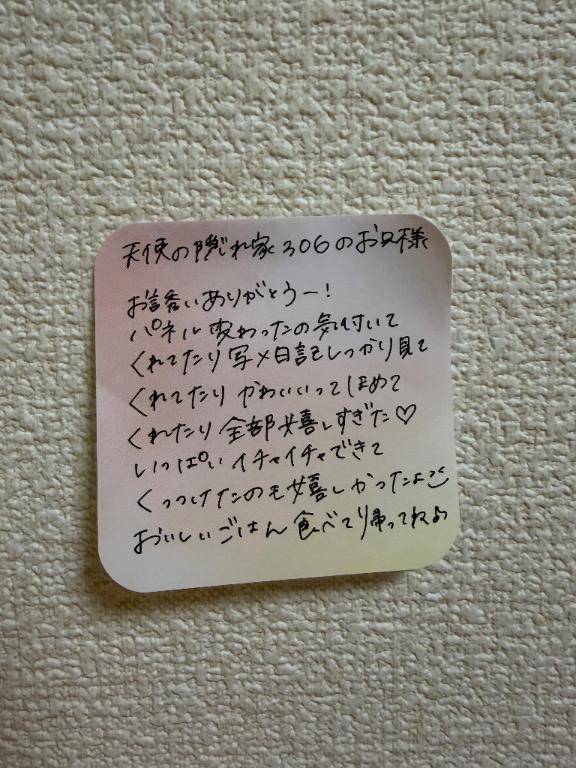 天使の隠れ家306のお兄様
お誘いありがとうー!
パネル変わったの気付いて
くれてたり写メ日記しっかり見て
くれてたりかわいいってほめて
くれたり全部嬉しすぎた♡
いっぱいイチャイチャできて
くっつけたのも嬉しかったよ
おいしいごはん食べて帰ってねよ